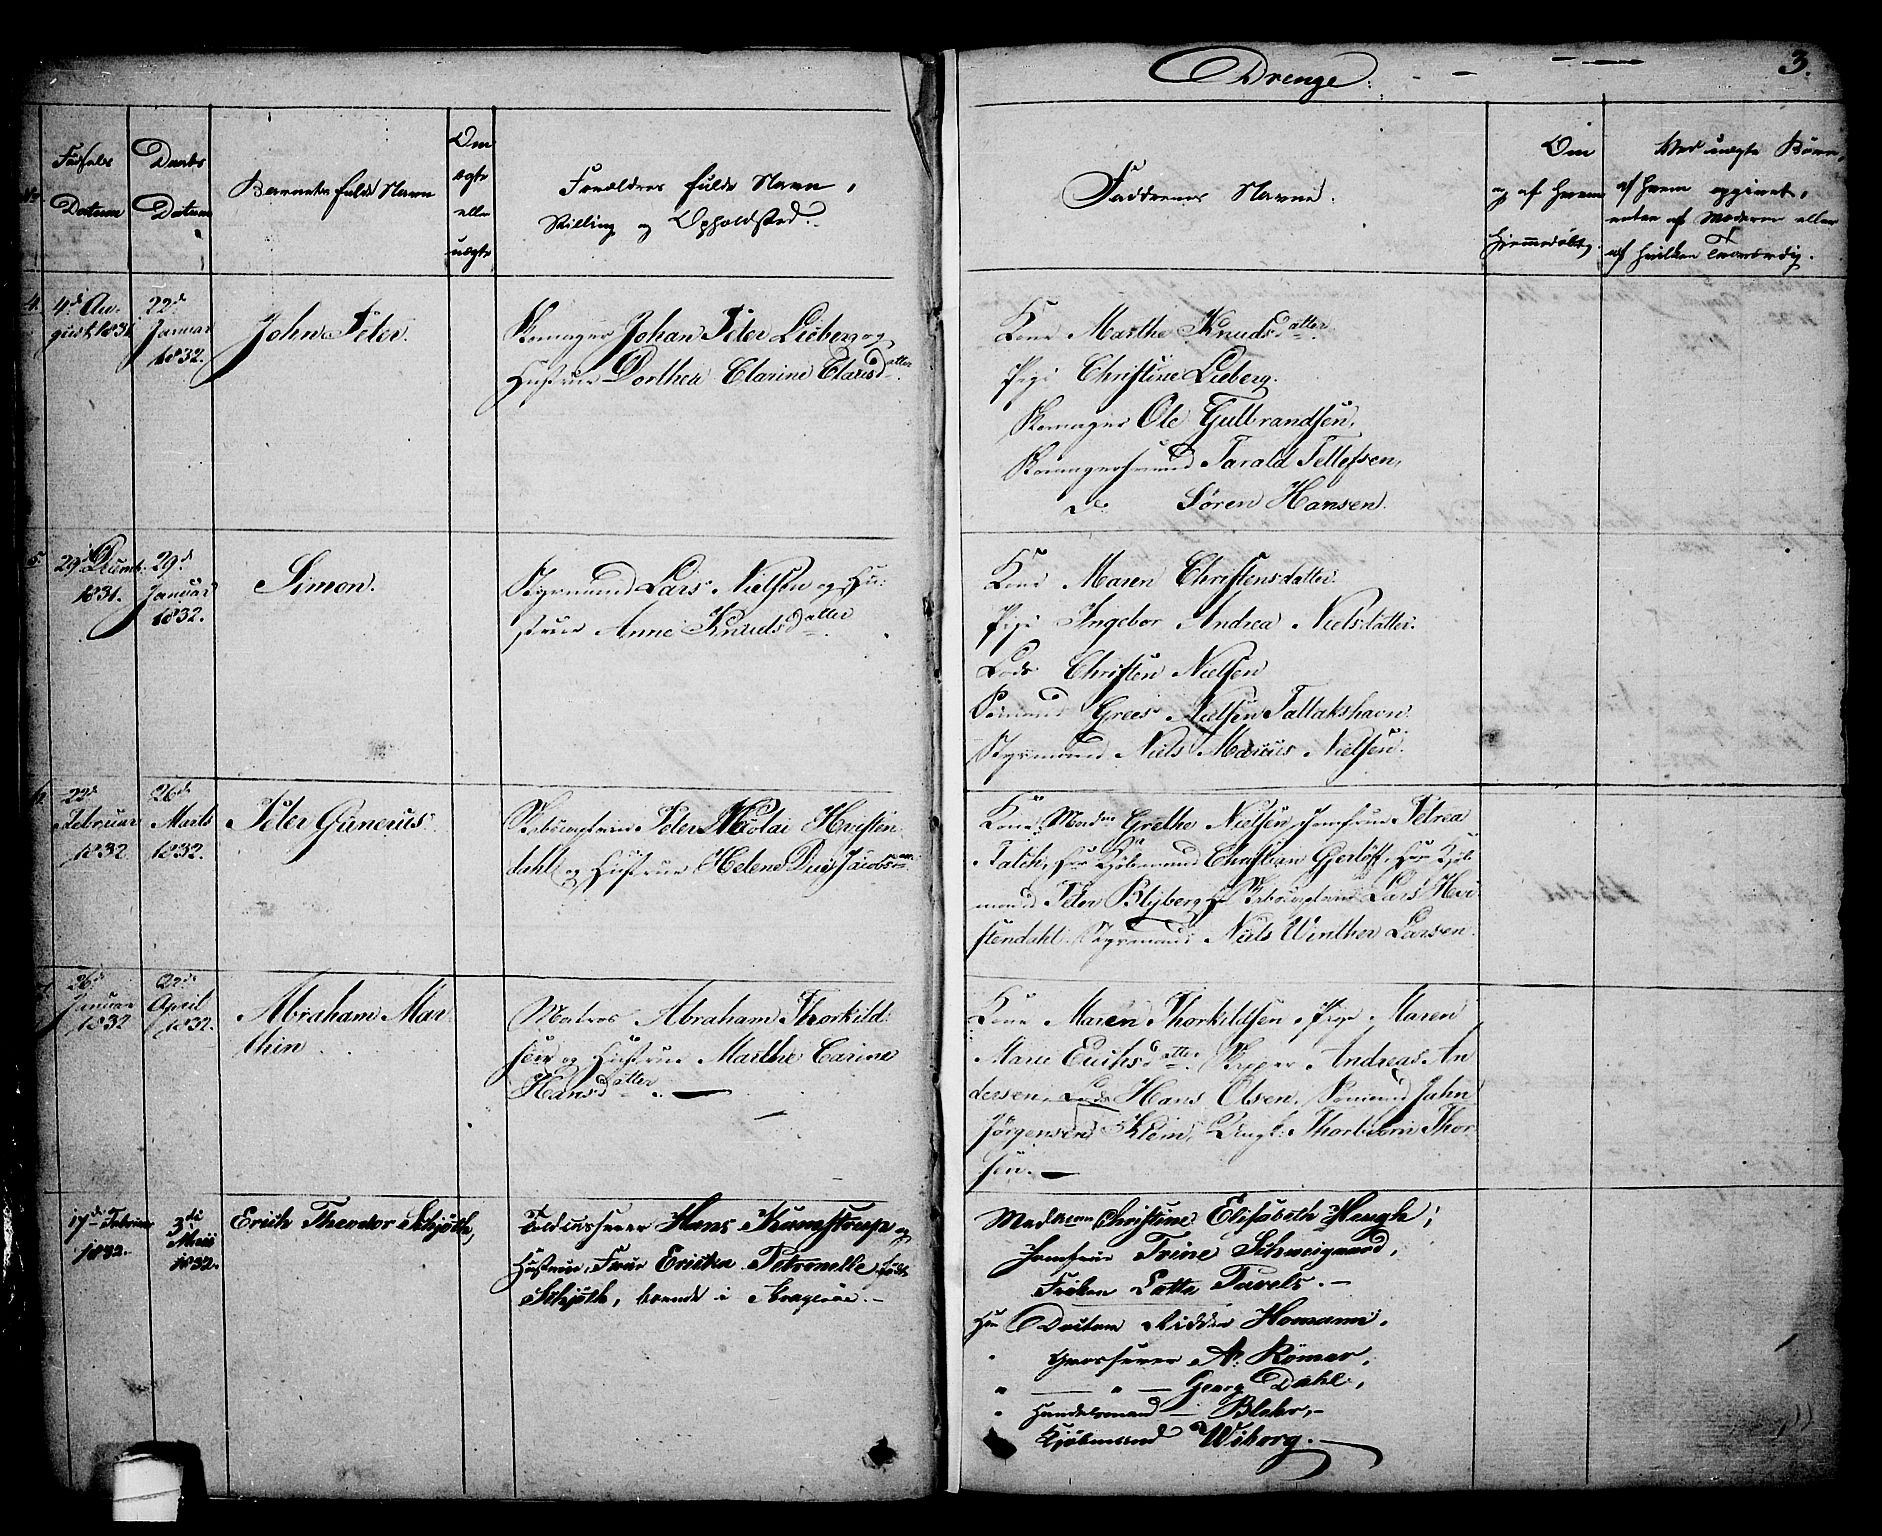 Drenge.
3.
No
Fødsels
Datum
Daabs
Datum
Barnets fulde Navn
Om
ægte
eller
uægte
Forældres fulde Navn,
Stilling og Opholdsted.
Faddernes Navne.
Om
og af hvem
hjemmedøbt.
Ved uægte Børn,
af hvem opgivet,
enten af Moderen eller
af hvilken Troværdig.
4.
4de Au-
gust 1831
22de
Januar
1832.
John Peter.
Skomager Johan Peter Lieberg og
Hustrue Dorthea Clarine Clausdatter.
Kone Marthe Knudsdatter
Pige Christine Lieberg.
Skomager Ole Gulbrandsen,
Skomagersvend Tarald Tellefsen,
do Søren Hansen.
5.
29de Decemb:
1831.
29de
Januar
1832.
Simon.
Styrmand Lars Nielsen og Hu-
strue Anne Knudsdatter
Kone Maren Christensdatter.
Pige Ingebor Andrea Nielsdatter.
Lods Christen Nielsen
Sømand Grees Nielsen Tallakshavn.
Styrmand Niels Marius Nielsen.
6.
22de
Februar
1832
26de
Marts
1832.
Peter Gunerius.
Peter Nicolai Hvisten
dahl og Hustrue Helene Due Jacobsen
Kone Madm Grethe Nielsen Jomfrue Petrea
Falch, Hr Kjøbmand Christian Gjerløff, Hr Kjøb
mand Peter Blyberg Hr Skibscaptein Lars Hvi
stendahl. Styrmand Niels Winther Larsen.
7.
26de
Januar
1832
22de
April
1832.
Abraham Mar
thin
Matros Abraham Thorkild
sen og Hustrue Marthe Carine
Hansdatter.
Kone Maren Thorkildsen Pige Maren
Marie Erichsdatter. Skipper Andreas An
dersen, Lods Hans Olsen. Sømand Jahn
Jørgensen Klem, Ungk: Thorbiørn Thor
sen.
17de Februar
1832.
3die
Mai
1832.
Erich Theodor Schjøth,
Toldcasserer Hans Kamstrup og
Hustrue, Frue Ericka Petronelle født
Schjøth, boende i Kragerøe.
Madam Christine Elisabeth Heugh,
Jomfrue Trine Schweigaard,
Frøken Lotte Favels.
Hr Doctor Ridder Homann,
" Grosserer A. Römer,
" — " — Georg Dahl,
" Handelsmand — Blehr,
Kjøbmand Wiborg.